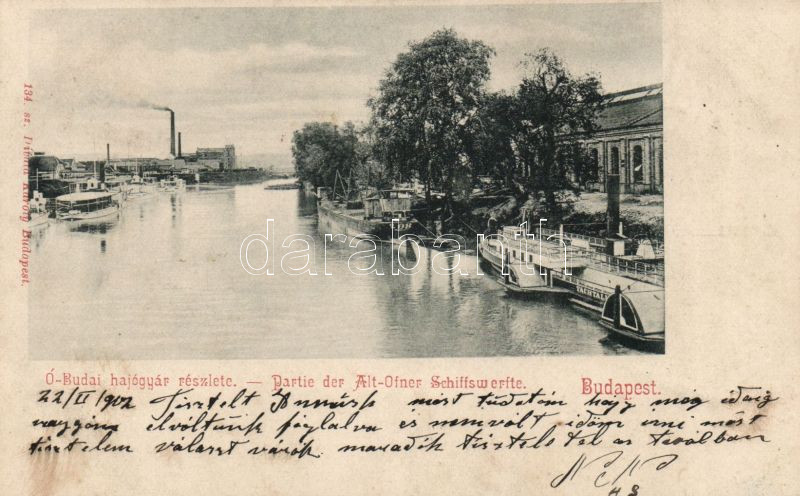 134. sz. Divald Károly Budapest.
darabanth
TANTAL
Ó-Budai hajógyár részlete. — Partie der Alt-Ofner Schiffswerfte. Budapest.
22/II 1902 Tisztelt most tudatom hogy még idáig
nagyon elvoltunk foglalva és nemvolt időm irni most
tisztelem választ várok maradok tisztelettel az távolban